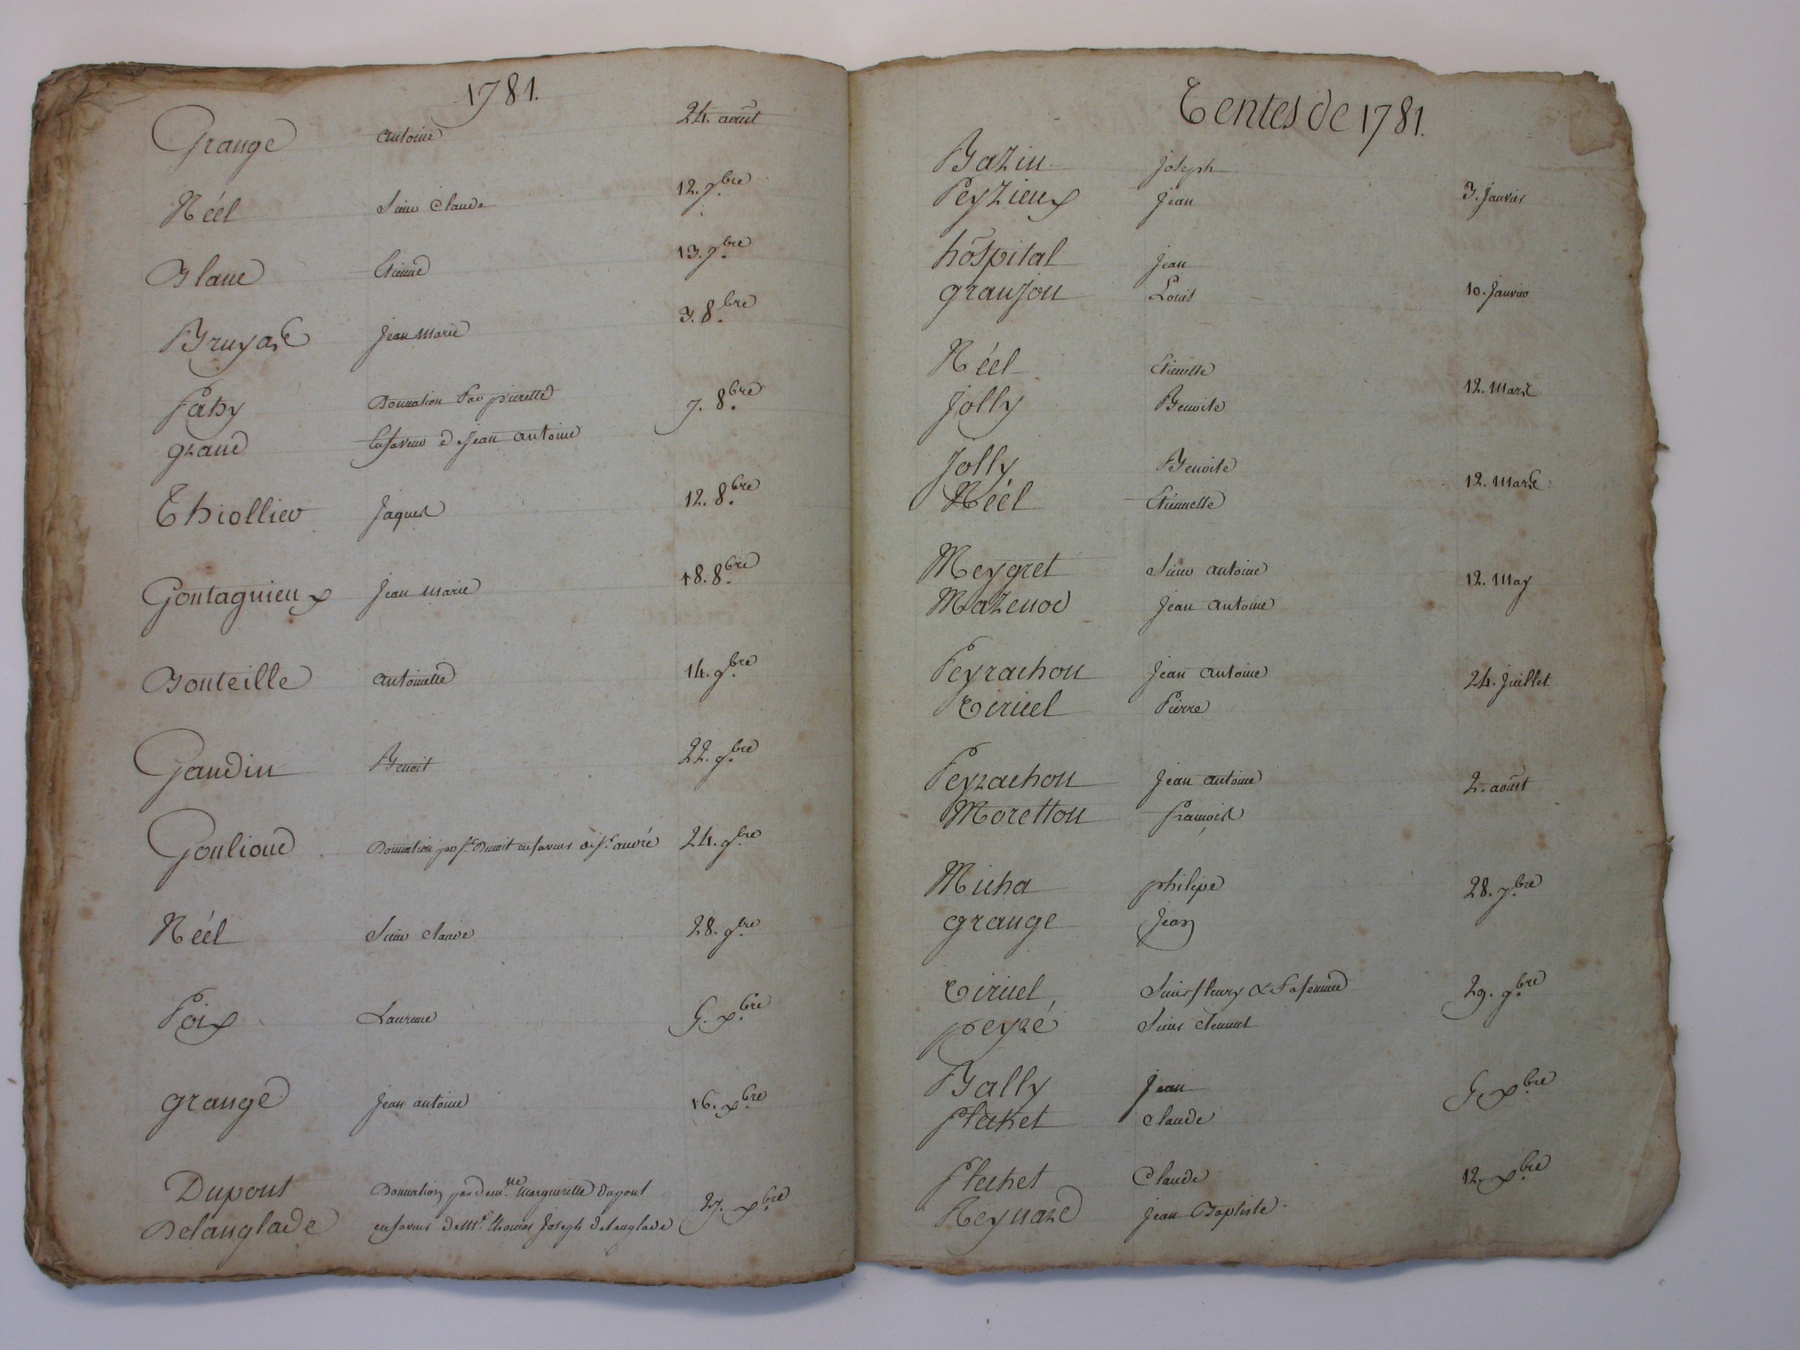 1781.
Grange antoine 24. aoûst
Néel Sieur Claude 12. 7.bre
Blanc Etienne 13. 7.bre
Bruyas Jean Marie 3. 8.bre
Fahy Donnation Par pierrette 7. 8.bre
grand En faveur de Jean antoine
Thiollier Jaques 12. 8.bre
Gontagnieux Jean marie 18. 8.bre
Bonteille antoinette 14. 9.bre
Gaudin Benoit 22. 9.bre
Goulioud Donnation par sr. Benoit en faveur de sr. andré 24. 9.bre
Néel Sieur claude 28. 9.bre
Poix Laurence 5. xbre
grange jean antoine 16. xbre
Dupont Donnation par dem.lle margueritte dupont 27. xbre
Delanglade en faveur de Mr. thomas Joseph delanglade
Ventes de 1781.
Bazin joseph
Peyzieux jean 3. janvier
hôspital jean
granjon Louis 10. janvier
Néel Etiennette
Jolly Benoite 12. Mars
Jolly Benoite
Néel Etiennette 12. Mars
Meygret Sieur antoine
Mazenod jean antoine 12. May
Peyrachon jean antoine
Tiruel Pierre 24. juillet
Peyrachon jean antoine
Moretton françois 2. aoûst
Micha philipe
grange jean 28. 7.bre
Tiruel, Sieur fleury & Sa femme
peyré Sieur clement 29. 9.bre
Bally jean
flachet claude 5. xbre
flachet Claude
Reynard jean Baptiste. 12. xbre